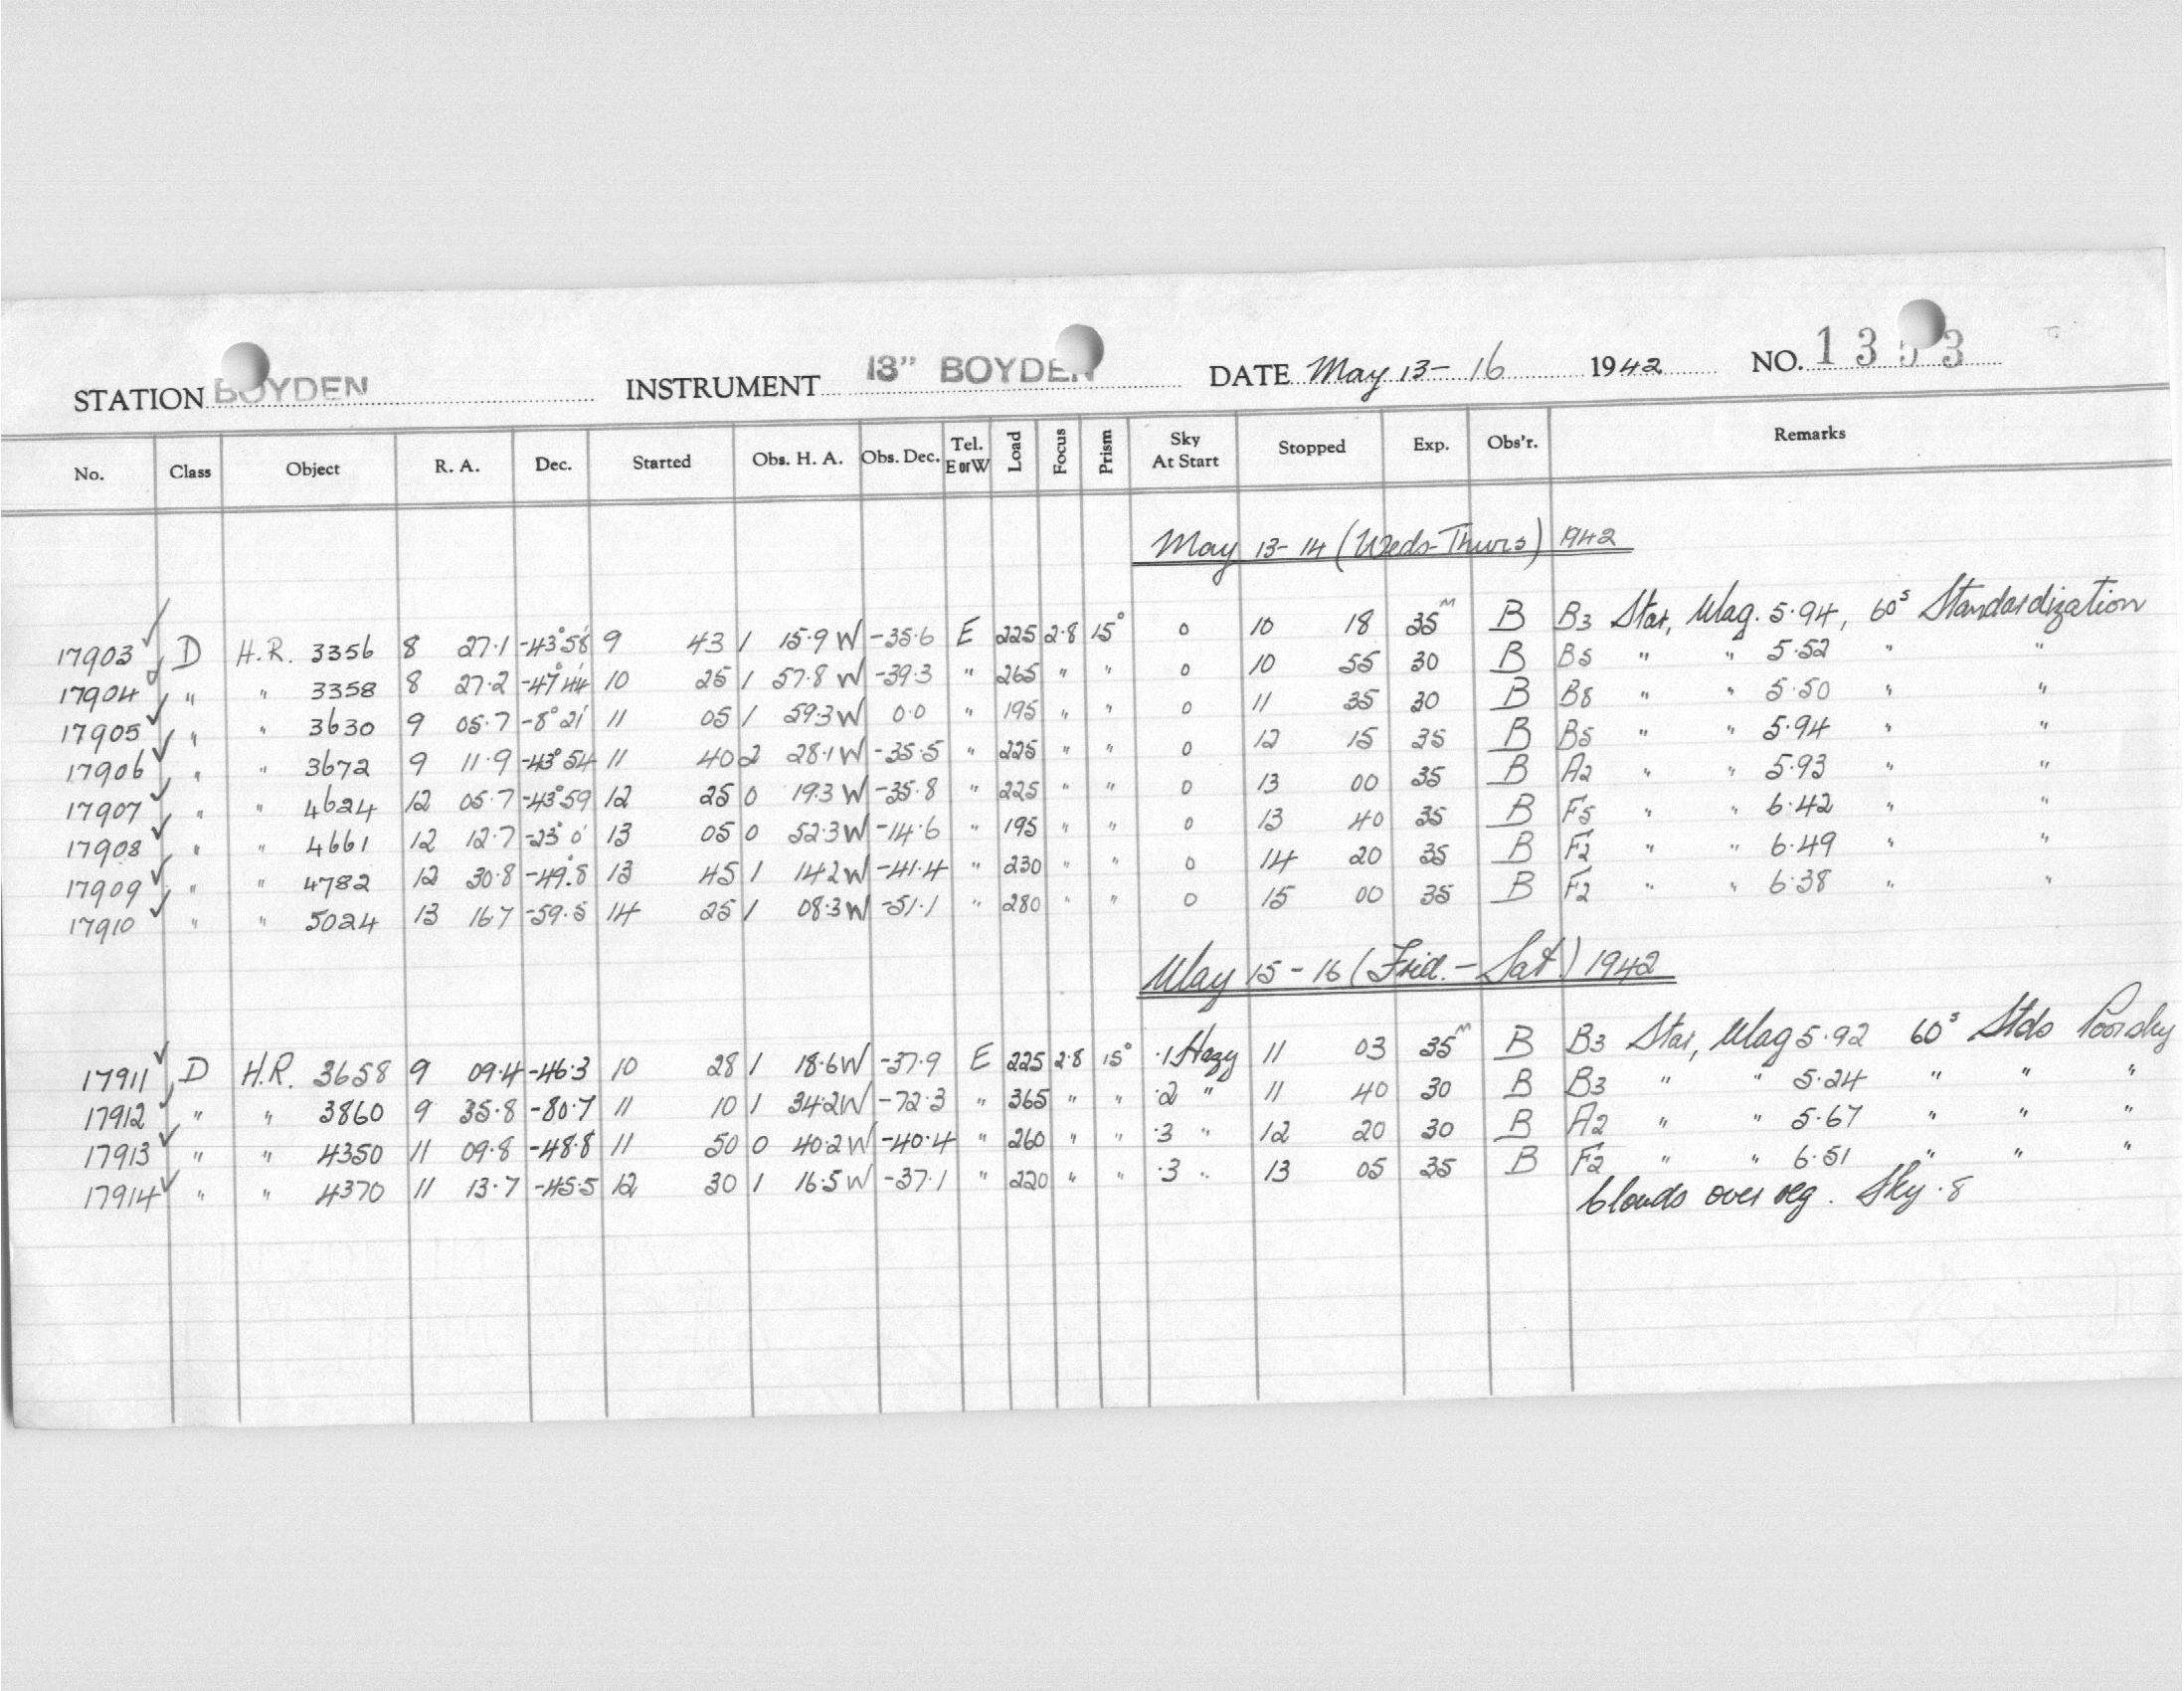 STATION BOYDEN INSTRUMENT 13" BOYDEN DATE May 13-16 1942 NO. 1353
No. Class Object R. A. Dec. Started Obs. H. A. Obs. Dec. Tel. E or W Load Focus Prism Sky At Start Stopped Exp. Obs'r. Remarks
May 13-14 (Weds-Thurs) 1942
17903 ✓ D H.R. 3356 8 27.1 -43°58' 9 43 1 15.9 W -35.6 E 225 2.8 15° 0 10 18 35m B B3 Star, Mag. 5.94, 60s Standardization
17904 ✓ " " 3358 8 27.2 -47°44' 10 25 1 57.8 W -39.3 " 265 " " 0 10 55 30 B B5 " " 5.52 " "
17905 ✓ " " 3630 9 05.7 -8°21' 11 05 1 59.3 W 0.0 " 195 " " 0 11 35 30 B B8 " " 5.50 " "
17906 ✓ " " 3672 9 11.9 -43°54 11 40 2 28.1 W -35.5 " 225 " " 0 12 15 35 B B5 " " 5.94 " "
17907 ✓ " " 4624 12 05.7 -43°59 12 25 0 19.3 W -35.8 " 225 " " 0 13 00 35 B A2 " " 5.93 " "
17908 ✓ " " 4661 12 12.7 -23°0' 13 05 0 52.3 W -14.6 " 195 " " 0 13 40 35 B F5 " " 6.42 " "
17909 ✓ " " 4782 12 30.8 -49°.8 13 45 1 14.2 W -41.4 " 230 " " 0 14 20 35 B F2 " " 6.49 " "
17910 ✓ " " 5024 13 16.7 -59.5 14 25 1 08.3 W -51.1 " 280 " " 0 15 00 35 B F2 " " 6.38 " "
May 15-16 (Frid.-Sat.) 1942
17911 ✓ D H.R. 3658 9 09.4 -46.3 10 28 1 18.6 W -37.9 E 225 2.8 15° .1 Hazy 11 03 35m B B3 Star, Mag 5.92 60s Stds Poor sky
17912 ✓ " " 3860 9 35.8 -80.7 11 10 1 34.2 W -72.3 " 365 " " .2 " 11 40 30 B B3 " " 5.24 " " "
17913 ✓ " " 4350 11 09.8 -48.8 11 50 0 40.2 W -40.4 " 260 " " .3 " 12 20 30 B A2 " " 5.67 " " "
17914 ✓ " " 4370 11 13.7 -45.5 12 30 1 16.5 W -37.1 " 220 " " .3 " 13 05 35 B F2 " " 6.51 " " "
Clouds over reg. Sky .8